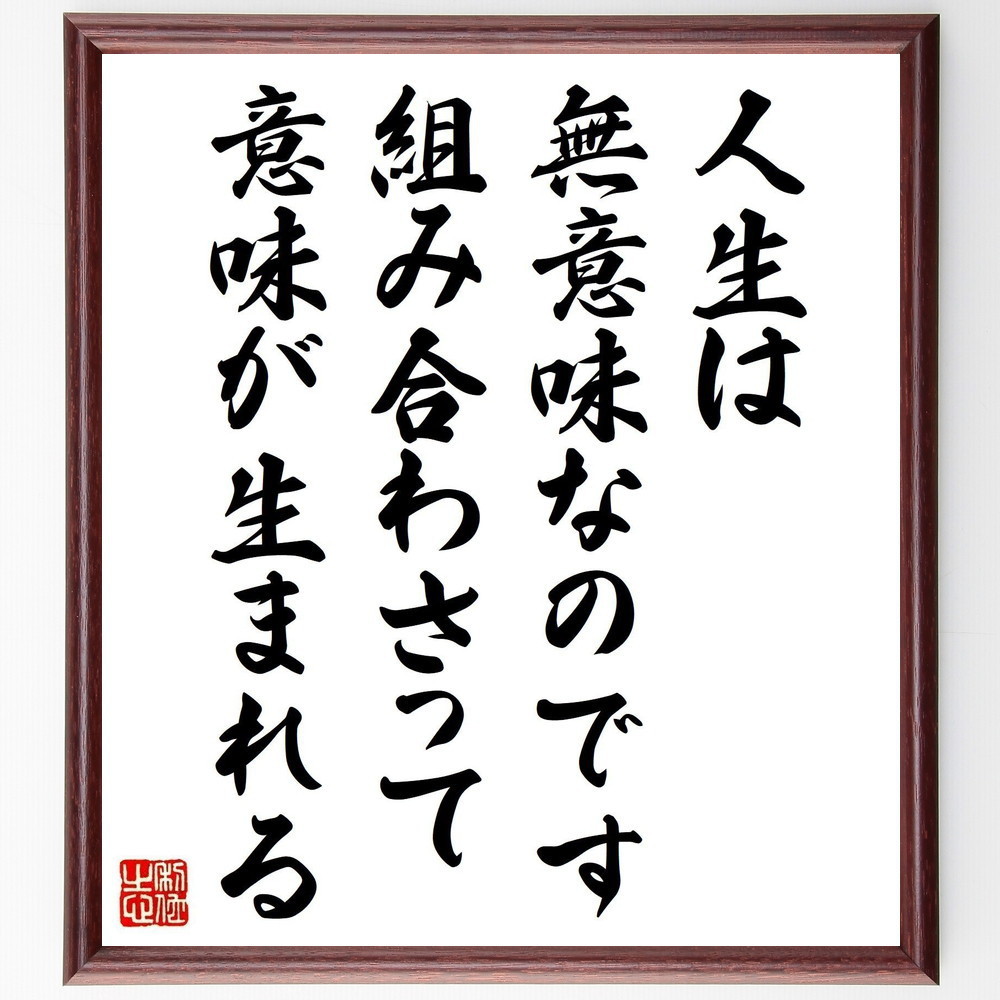 人生は
無意味なのです
組み合わさって
意味が生まれる